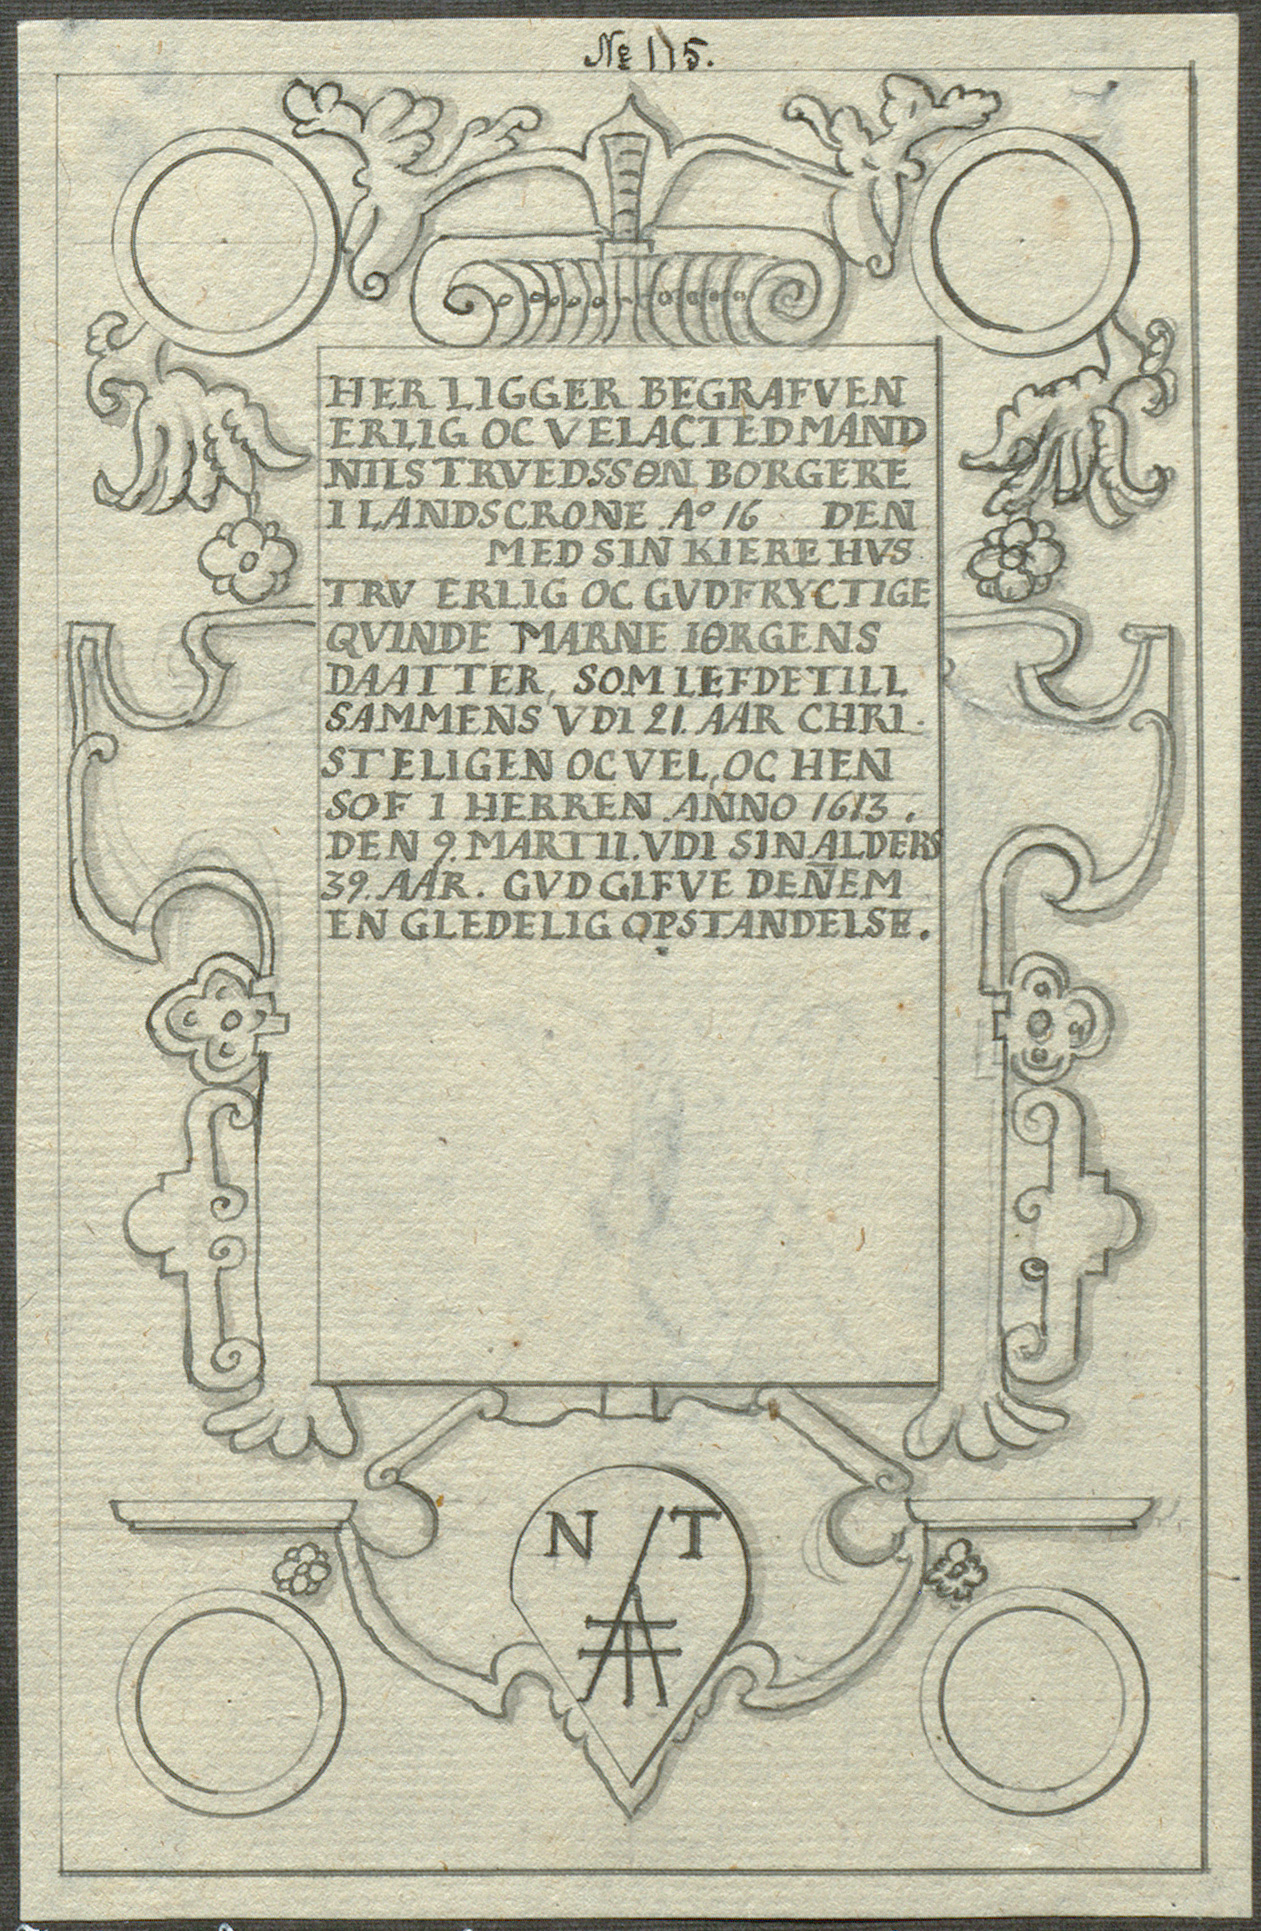 No 115.
HER LIGGER BEGRAFVEN
ERLIG OC VELACTED MAND
NILS TRVEDSSØN BORGERE
I LANDSCRONE Ao 16 DEN
MED SIN KIERE HVS
TRV ERLIG OC GVDFRYCTIGE
QVINDE MARNE IØRGENS
DAATTER, SOM LEFDE TILL
SAMMENS VDI 21. AAR CHRI-
STELIGEN OC VEL, OC HEN
SOF I HERREN ANNO 1613.
DEN 9. MARTII. VDI SIN ALDERS
39. AAR. GVD GIFVE DEN̄EM
EN GLEDELIG OPSTANDELSE.
N T